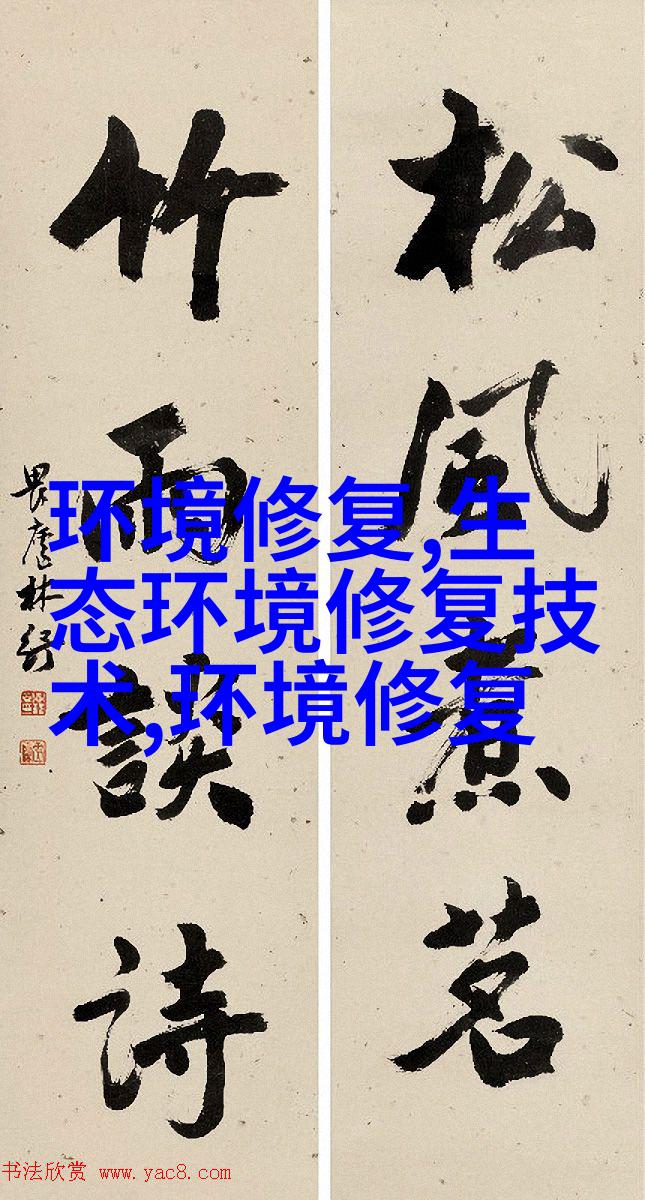 松風煮茗
竹雨談詩
畏廬林紓
环境修复,生
态环境修复技
术,环境修复
书法欣赏 www.yac8.com